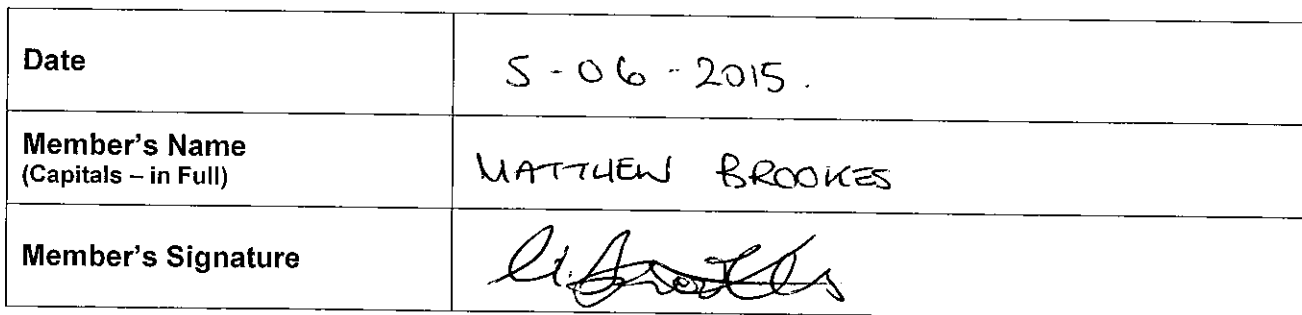 Date
5-06-2015.
Member's Name
(Capitals – in Full)
MATTHEW BROOKES
Member's Signature